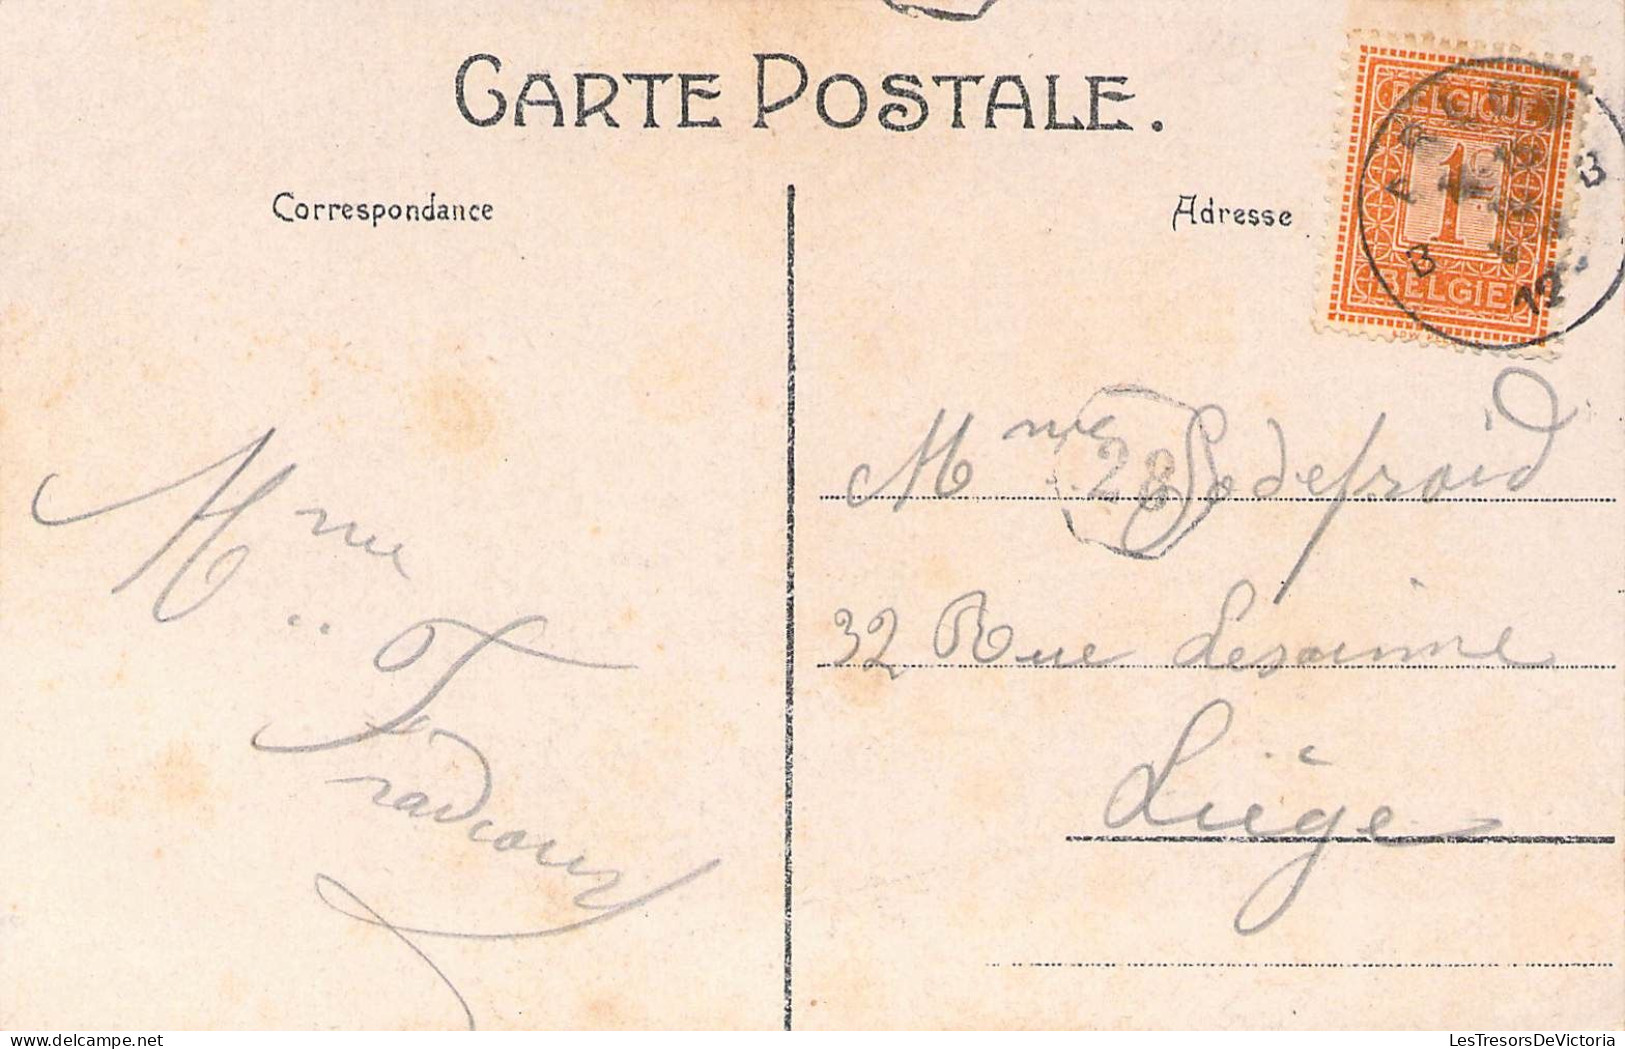 CARTE POSTALE.
Correspondance
Adresse
BELGIQUE
1
BELGIE
B B
12
28
Mme Godefroid
32 Rue Lesoinne
Liège
Mme
LesTresorsDeVictoria